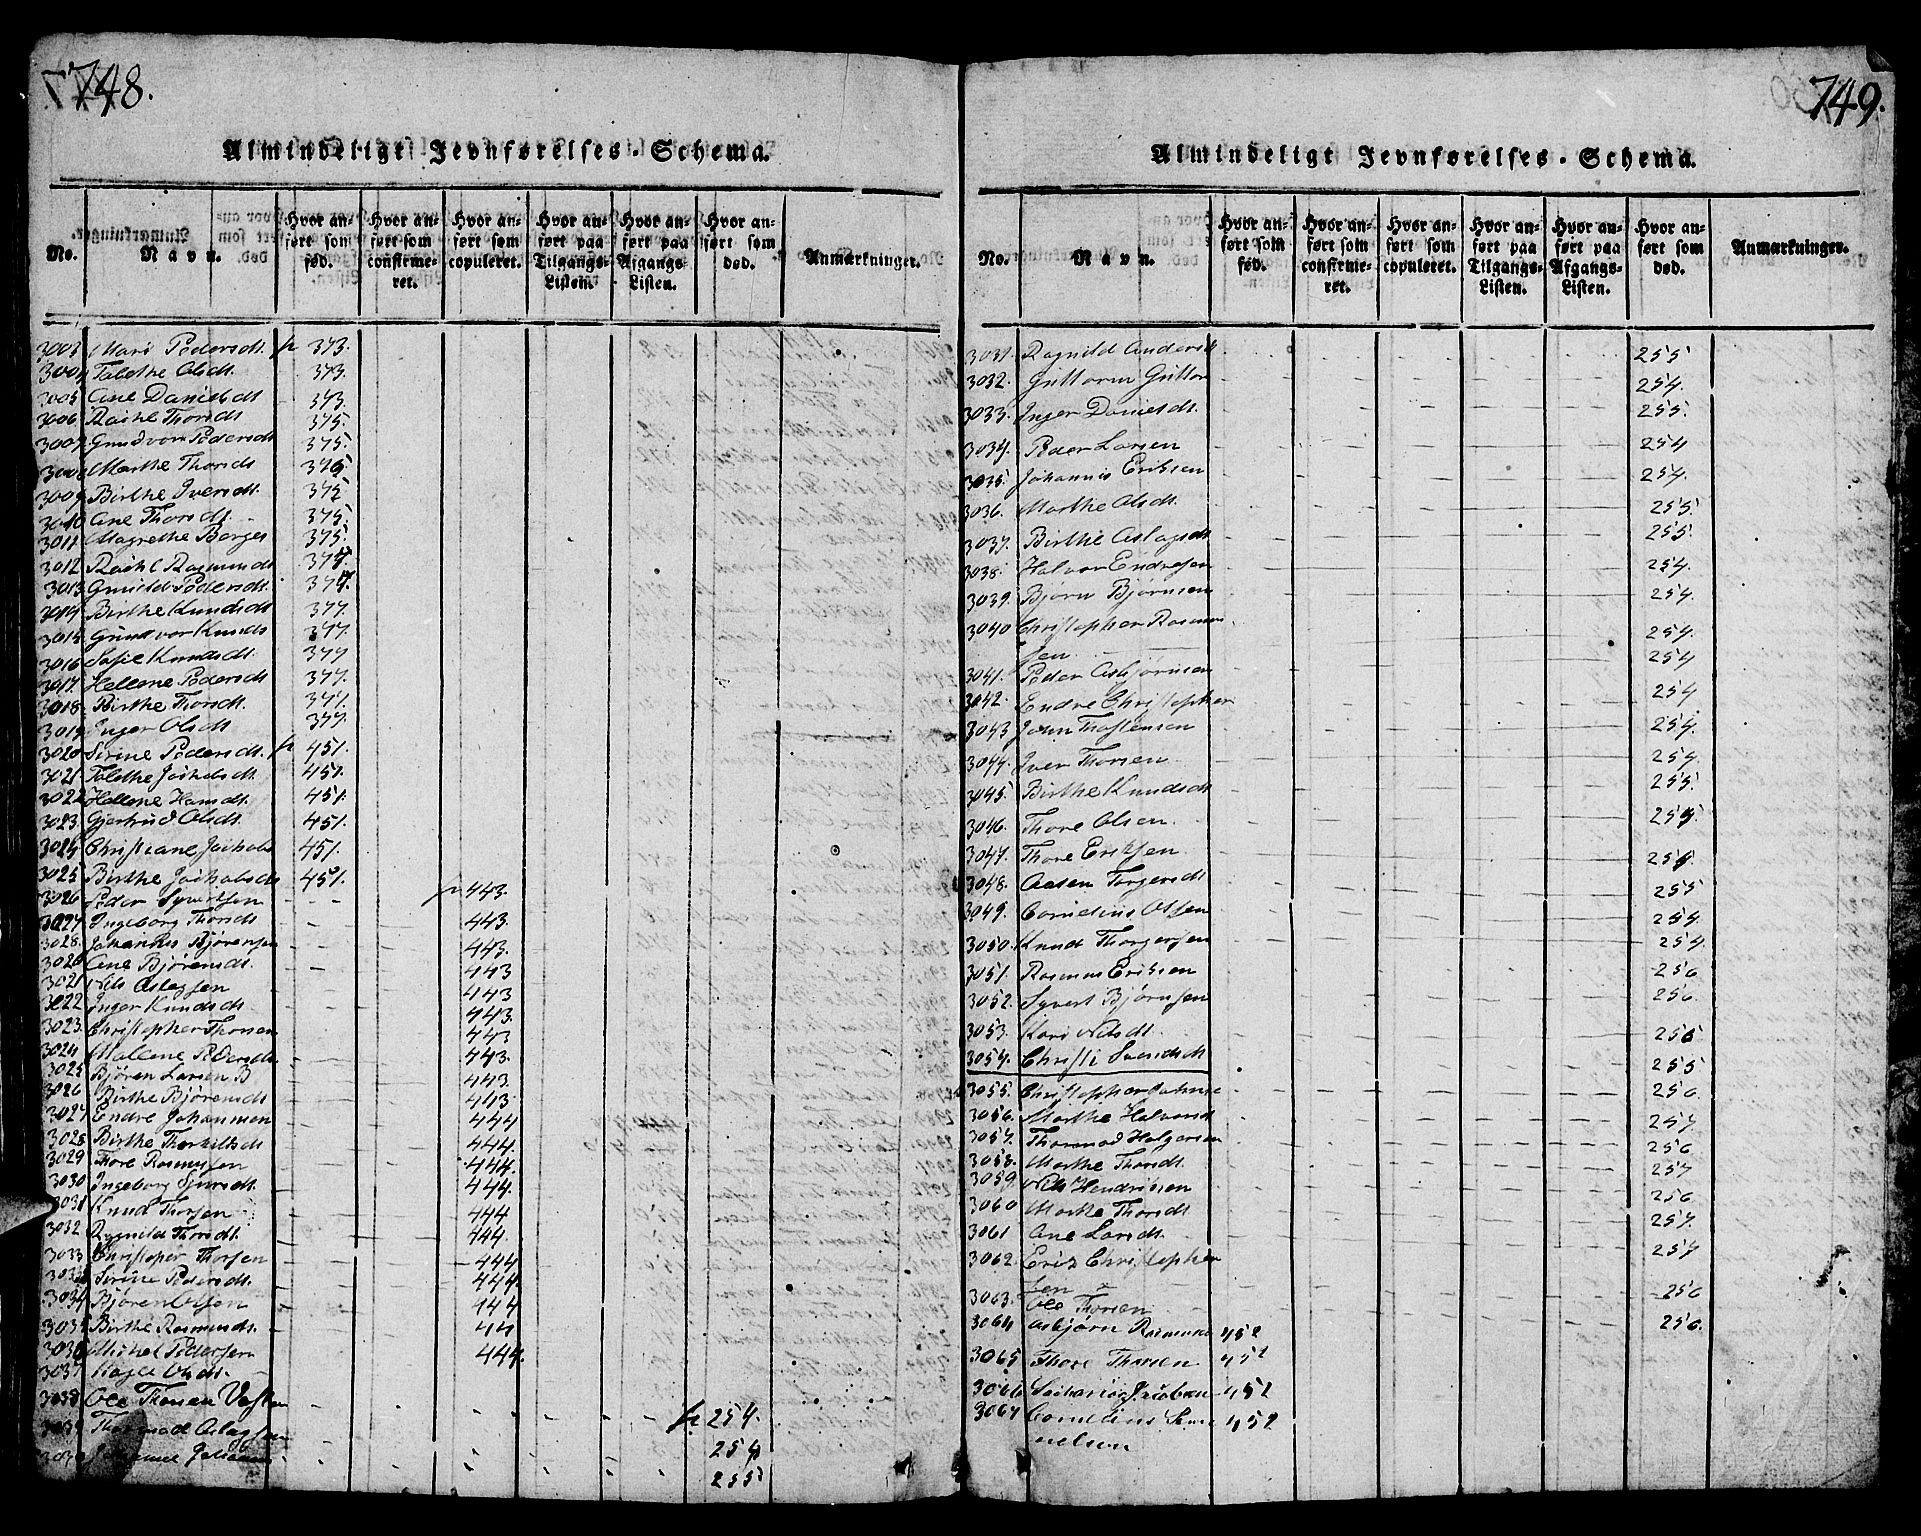 748.
Almindeligt Jevnførelses-Schema.
No. Navn. Hvor anført som fød. Hvor anført som confirmeret. Hvor anført som copuleret. Hvor anført paa Tilgangs-Listen. Hvor anført paa Afgangs-Listen. Hvor anført som død. Anmærkninger.
3003 Mari Pedersdt. p 373.
3004 Tabithe Olsdt. 373.
3005 Ane Danieldt 373
3006 Rachel Thorsdt 375.
3007 Gundvor Pedersdt 375.
3008 Marthe Thorsdt 375
3009 Birthe Iversdt. 375
3010 Ane Thorsdt. 375.
3011 Magrethe Borges 375.
3012 Rachel Rasmusdt 377
3013 Gunild Pedersdt. 377.
3014 Birthe Knudsdt 377.
3015 Gundvor Knuds 377.
3016 Sofie Knudsdt. 377
3017. Hellene Pedersdt 377.
3018. Birthe Thorsdt. 377.
3019 Inger Olsdt 377.
3020 Serine Pedersdt. p 451.
3021 Tabithe Jachobsdt 451.
3022 Hellene Hansdt. 451.
3023. Gjertrud Olsdt. 451.
3024 Christiane Jachobs 451.
3025 Birthe Jachobsdt 451.
3026 Peder Syvertsen p 443.
3027 Ingeborg Thorsdt 443.
3028. Johannes Bjørensen 443.
3020 Ane Bjørensdt. 443
3021 Nils Aslagsen 443
3022 Inger Knudsdt 443.
3023. Christopher Thorsen 443
3024 Malene Pedersdt. 443.
3025 Bjøren Larsen B 443.
3026 Birthe Bjørensdt 443
3027 Endre Johannen 444
3028 Birthe Thorkildsdt 444.
3029 Thore Rasmusen 444.
3030 Ingeborg Sjursdt. 444.
3031 Knud Thorsen 444
3032 Ragnild Thorsdt. 444.
3033 Christopher Thorsen 444
3033 Serine Pedersdt. 444.
3034 Bjøren Olsen 444
3035 Birthe Rasmusdt. 444
3036 Michel Pedersen 444.
3037 Olsdt.
3038 Ole Thorsen p 254.
3039 Thormod Aslagsen 254
255
749.
Almindeligt Jevnførelses-Schema.
No. Navn. Hvor anført som fød. Hvor anført som confirmeret. Hvor anført som copuleret. Hvor anført paa Tilgangs-Listen. Hvor anført paa Afgangs-Listen. Hvor anført som død. Anmærkninger.
3031. Ragnild Andersdt 255
3032. Guttorm Guttor 254.
3033. Inger Danieldt. 255.
3034. Peder Larsen 254
3035. Johannis Eriksen 254.
3036. Marthe Olsdt. 255.
3037. Birthe Aslagsdt 255.
3038. Halvor Endresen 254.
3039. Bjørn Bjørnsen 254.
3040 Christopher Rasmus 254.
sen
3041. Peder Asbjørnsen 254
3042. Endre Christopher 254
3043 John Thostensen 254.
3044. Iver Thorsen 254.
3045. Birthe Knudsdt 255.
3046. Thore Olsen. 255
3047. Thore Eriksen 255
3048. Aasen Torgersdt 255
3049. Cornelius Olsen 254
3050. Knud Thorgersen 254.
3051. Rasmus Eriksen 256
3052. Syvert Bjørnsen 256.
3053. Kari Nilsdt. 256
3054. Christi Svendsdt 255
3055. Christopher 256
3056. Marthe Halvorsdt 257.
3057. Thormod Holgersen 256
3058. Marthe Thorsdt. 257
3059 Nils Hendrissen 256
3060 Marthe Thorsdt 257.
3061 Ane Larsdt. 257
3062. Erik Christopher 256
sen
3063. Ole Thorsen 256.
3064 Asbjørn Rasmuse 452
3065 Thore Thorsen 452
3066 452
3067 Cornelius 452
nelsen